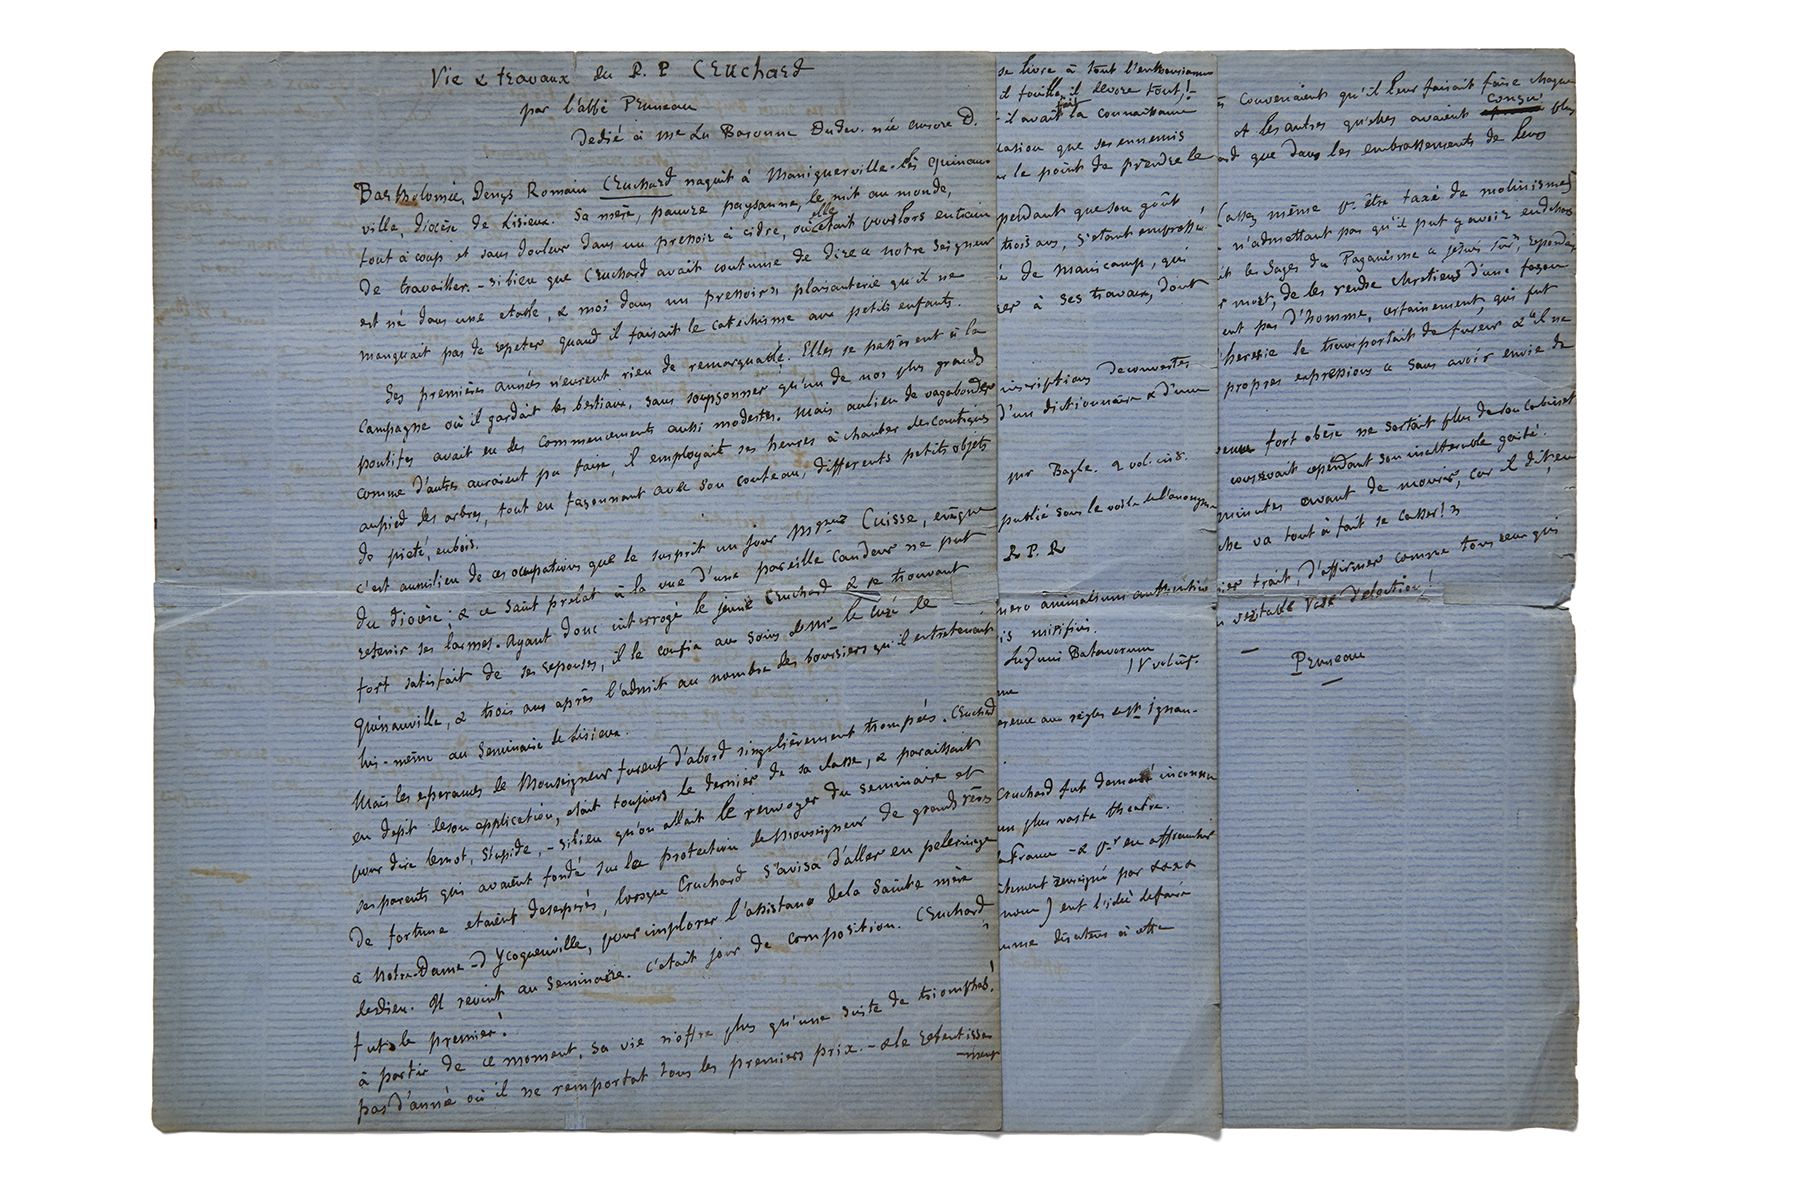 Vie & travaux du R. P CRUCHARD
par l'abbé Pruneau
Dedié à me La Baronne Dudev. née aurore D.
Bartholomée, Denys Romain Cruchard naquit à Maniquerville-lès Quincau
ville, diocèse de Lisieux. Sa mère, pauvre paysanne, le mit au monde,
tout à coup et sans douleur dans un pressoir à cidre, où elle était pourlors entrain
De travailler. - Si bien que Cruchard avait coutume de dire « notre Seigneur
est né dans une etable, & moi dans un pressoir », plaisanterie qu'il ne
manquait pas de repeter quand il faisait le catéchisme aux petits enfants.
Ses premières années n'eurent rien de remarquable. Elles se passèrent à la
Campagne où il gardait les bestiaux, sans soupçonner qu'un de nos plus grands
pontifes avait eu des commencements aussi modestes. Mais aulieu de vagabonder
comme d'autres auraient pu faire, il employait ses heures à chanter des cantiques
aupied des arbres, tout en façonnant avec son couteau, differents petits objets
de pieté, enbois.
c'est aumilieu de ces occupations que le surprit un jour Mgneur Cuisse, evêque
du diocèse; & ce saint prelat à la vue d'une pareille candeur ne put
retenir ses larmes. Ayant donc interrogé le jeune Cruchard & se trouvant
fort satisfait de ses reponses, il le confia aux soins de Mr le curé de
Quénauville, & trois ans après l'admit au nombre des boursiers qu'il entretenait
lui-même au Seminaire de Lisieux.
Mais les esperances de Monseigneur furent d'abord singulièrement trompées. Cruchard
en depit deson application, etait toujours le dernier de sa classe, & paraissait
pour dire lemot, stupide, - si bien qu'on allait le renvoyer du seminaire et
ses parents qui avaient fondé sur la protection de Monseigneur de grands rêves
De fortune etaient desesperés, lorsque Cruchard s'avisa d'aller en pelerinage
à Notre-Dame-d'Ycoqueuville, pour implorer l'assistance dela Sainte mère
dedieu. Il revint au Seminaire. C'etait jour de composition. Cruchard
fut le premier!
à partir de ce moment, sa vie n'offre plus qu'une suite de triomphes!
pas d'année où il ne remportat tous les premiers prix. - & le retentisse
-ment
se livre à tout l'enthousiasme
il fouille, il devore tout! -
il avait fait la connaissance
dation que ses ennemis
le point de prendre le
pendant que son goût
trois ans, s'etant emprossé
de Manicamp, qui
er à ses travaux, dont
inscriptions decouvertes
d'un dictionnaire & d'une
pr Bayle. 9 vol in 8.
publié sous le voile de l'anonyme
R P. R
nero animalium authentico
is mirifius.
Lugduni Batavorum
IV vol in f.
me
aux règles de St Ignau-
Cruchard fut demeuré inconnu
un plus vaste theatre.
la France - & pr en affranchir
ctement renseigné par xxxx
nom) eut l'idée defaire
mme directeur à cette
s convenaient qu'il leur faisait faire chaque
conçu
et les autres qu'elles avaient plus
rd que dans les embrassements de leurs
(assez même pr être taxé de molinisme)
n'admettant pas qu'il put y avoir endehors
it les Sages du Paganisme & repentir
mort, de les rendre chretiens d'une façon
ent pas d'homme, certainement, qui fut
'heresie le transportait de fureur & "il ne
propres expressions « sans avoir envie de
venu fort obèse ne sortait plus de son cabinet
conservait cependant son inalterable gaité.
minutes avant de mourir, car il dit, en
che va tout à fait se casser! »
nier trait, d'affirmer comme tous ceux qui
veritable Vase d'election!
Pruneau